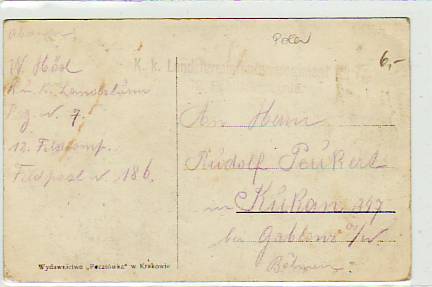 Polen
6,-
W. Hösl
K. u. K. Landsturm
Reg. No 7.
12. Feldcomp.
Feldpost No 186.
K. k. Landsturm
An Herrn
Rudolf Peukert
in Kukan 397
bei Gablonz a/N.
Böhmen
Wydawnictwo „Pocztówka" w Krakowie